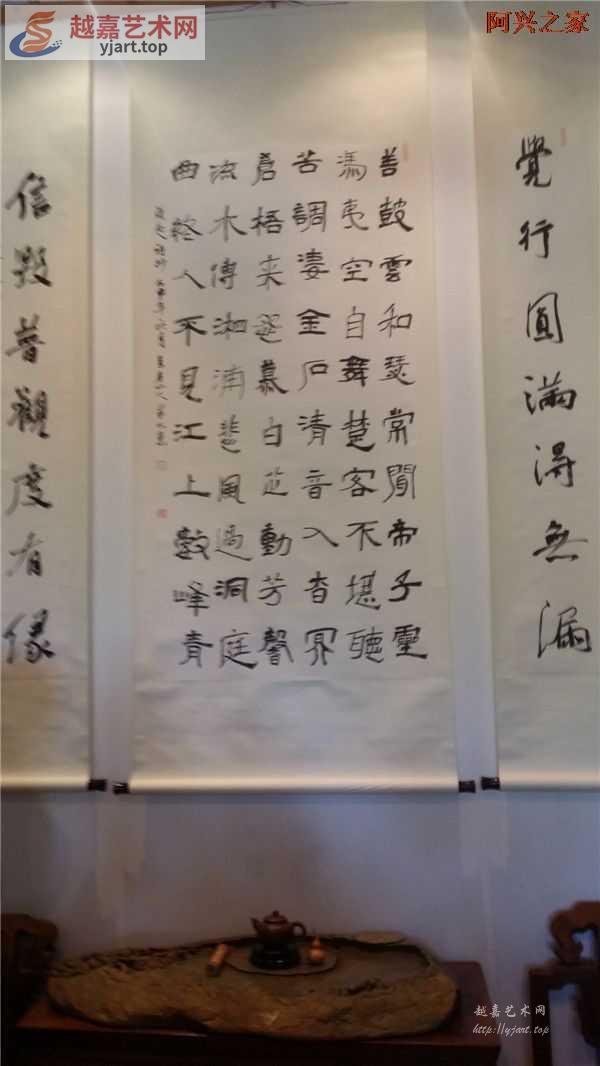 越嘉艺术网
yjart.top
阿兴之家
覺行圓滿得無漏
善鼓雲和瑟常聞帝子靈
馮夷空自舞楚客不堪聽
苦調凄金石清音入杳冥
蒼梧来怨慕白芷動芳馨
流水傳湘浦悲風過洞庭
曲終人不見江上數峰青
信毀普觀度有緣
越嘉艺术网
http://yjart.top